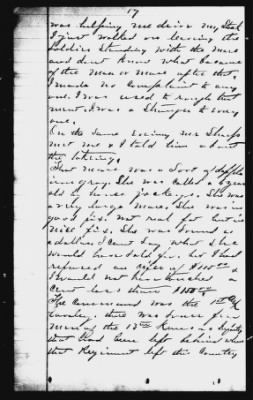 17
was helping me drive my stock
I just walked on leaving the
soldier standing with the mare
and dont know what became
of the man or mare after that.
I made no complaint to any
one. I was used to rough treat
ment. I was a stranger to every
one.
On the same evening Mr Sharp
met me & I told him about
the taking.
That mare was a sort of dapple
iron gray. She was called 6 years
old by horse jockeys. She was
a very large mare. She was in
good fix. Not real fat but in
nice fix. She was sound as
a dollar. I cant say what she
would have sold for. but I had
refused an offer of $100 &
I would not have taken a
cent less than $150
The command was the 1st
Cavalry. there was four or five
men of the 13th Kansas
that had been left behind when
that Regiment left this Country